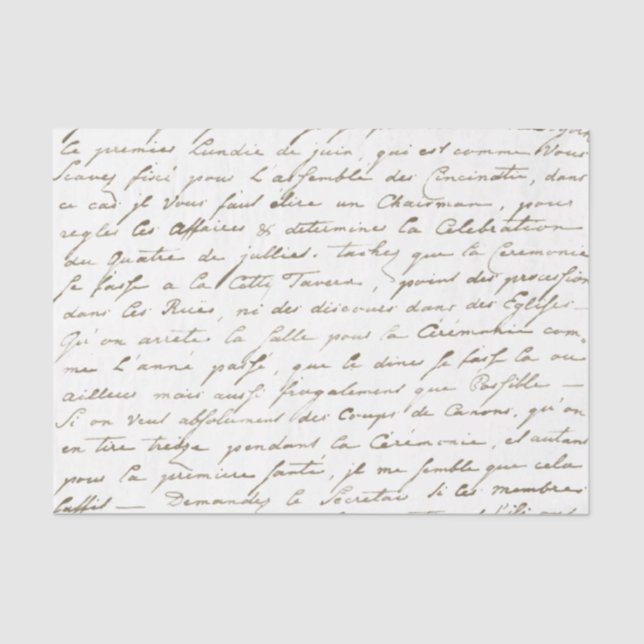 le premier Lundie de juin, qui est comme Vous
Scaves fixé pour L'assemblé des Cincinatie, dans
ce cas jl Vous faut elire un Chairman, pour
regles les affaires & determines la Celebration
du Quatre de jullies. taches que la Ceremonie
se fasse a la Citty Tavern, point des procession
dans les Ruës, ni des discours dans des Eglises-
Qu'on arrete la salle pour la Cérémonie com=
me L'anné passé, que le dines se fasse la ou
ailleurs mais aussi frugalement que Possible —
Si on veut absolument des Coups de Canons, qu'on
en tire treize pendant la Cérémonie, et autant
pour la première santé, jl me semble que cela
suffit — Demandes le Secretair si les membres